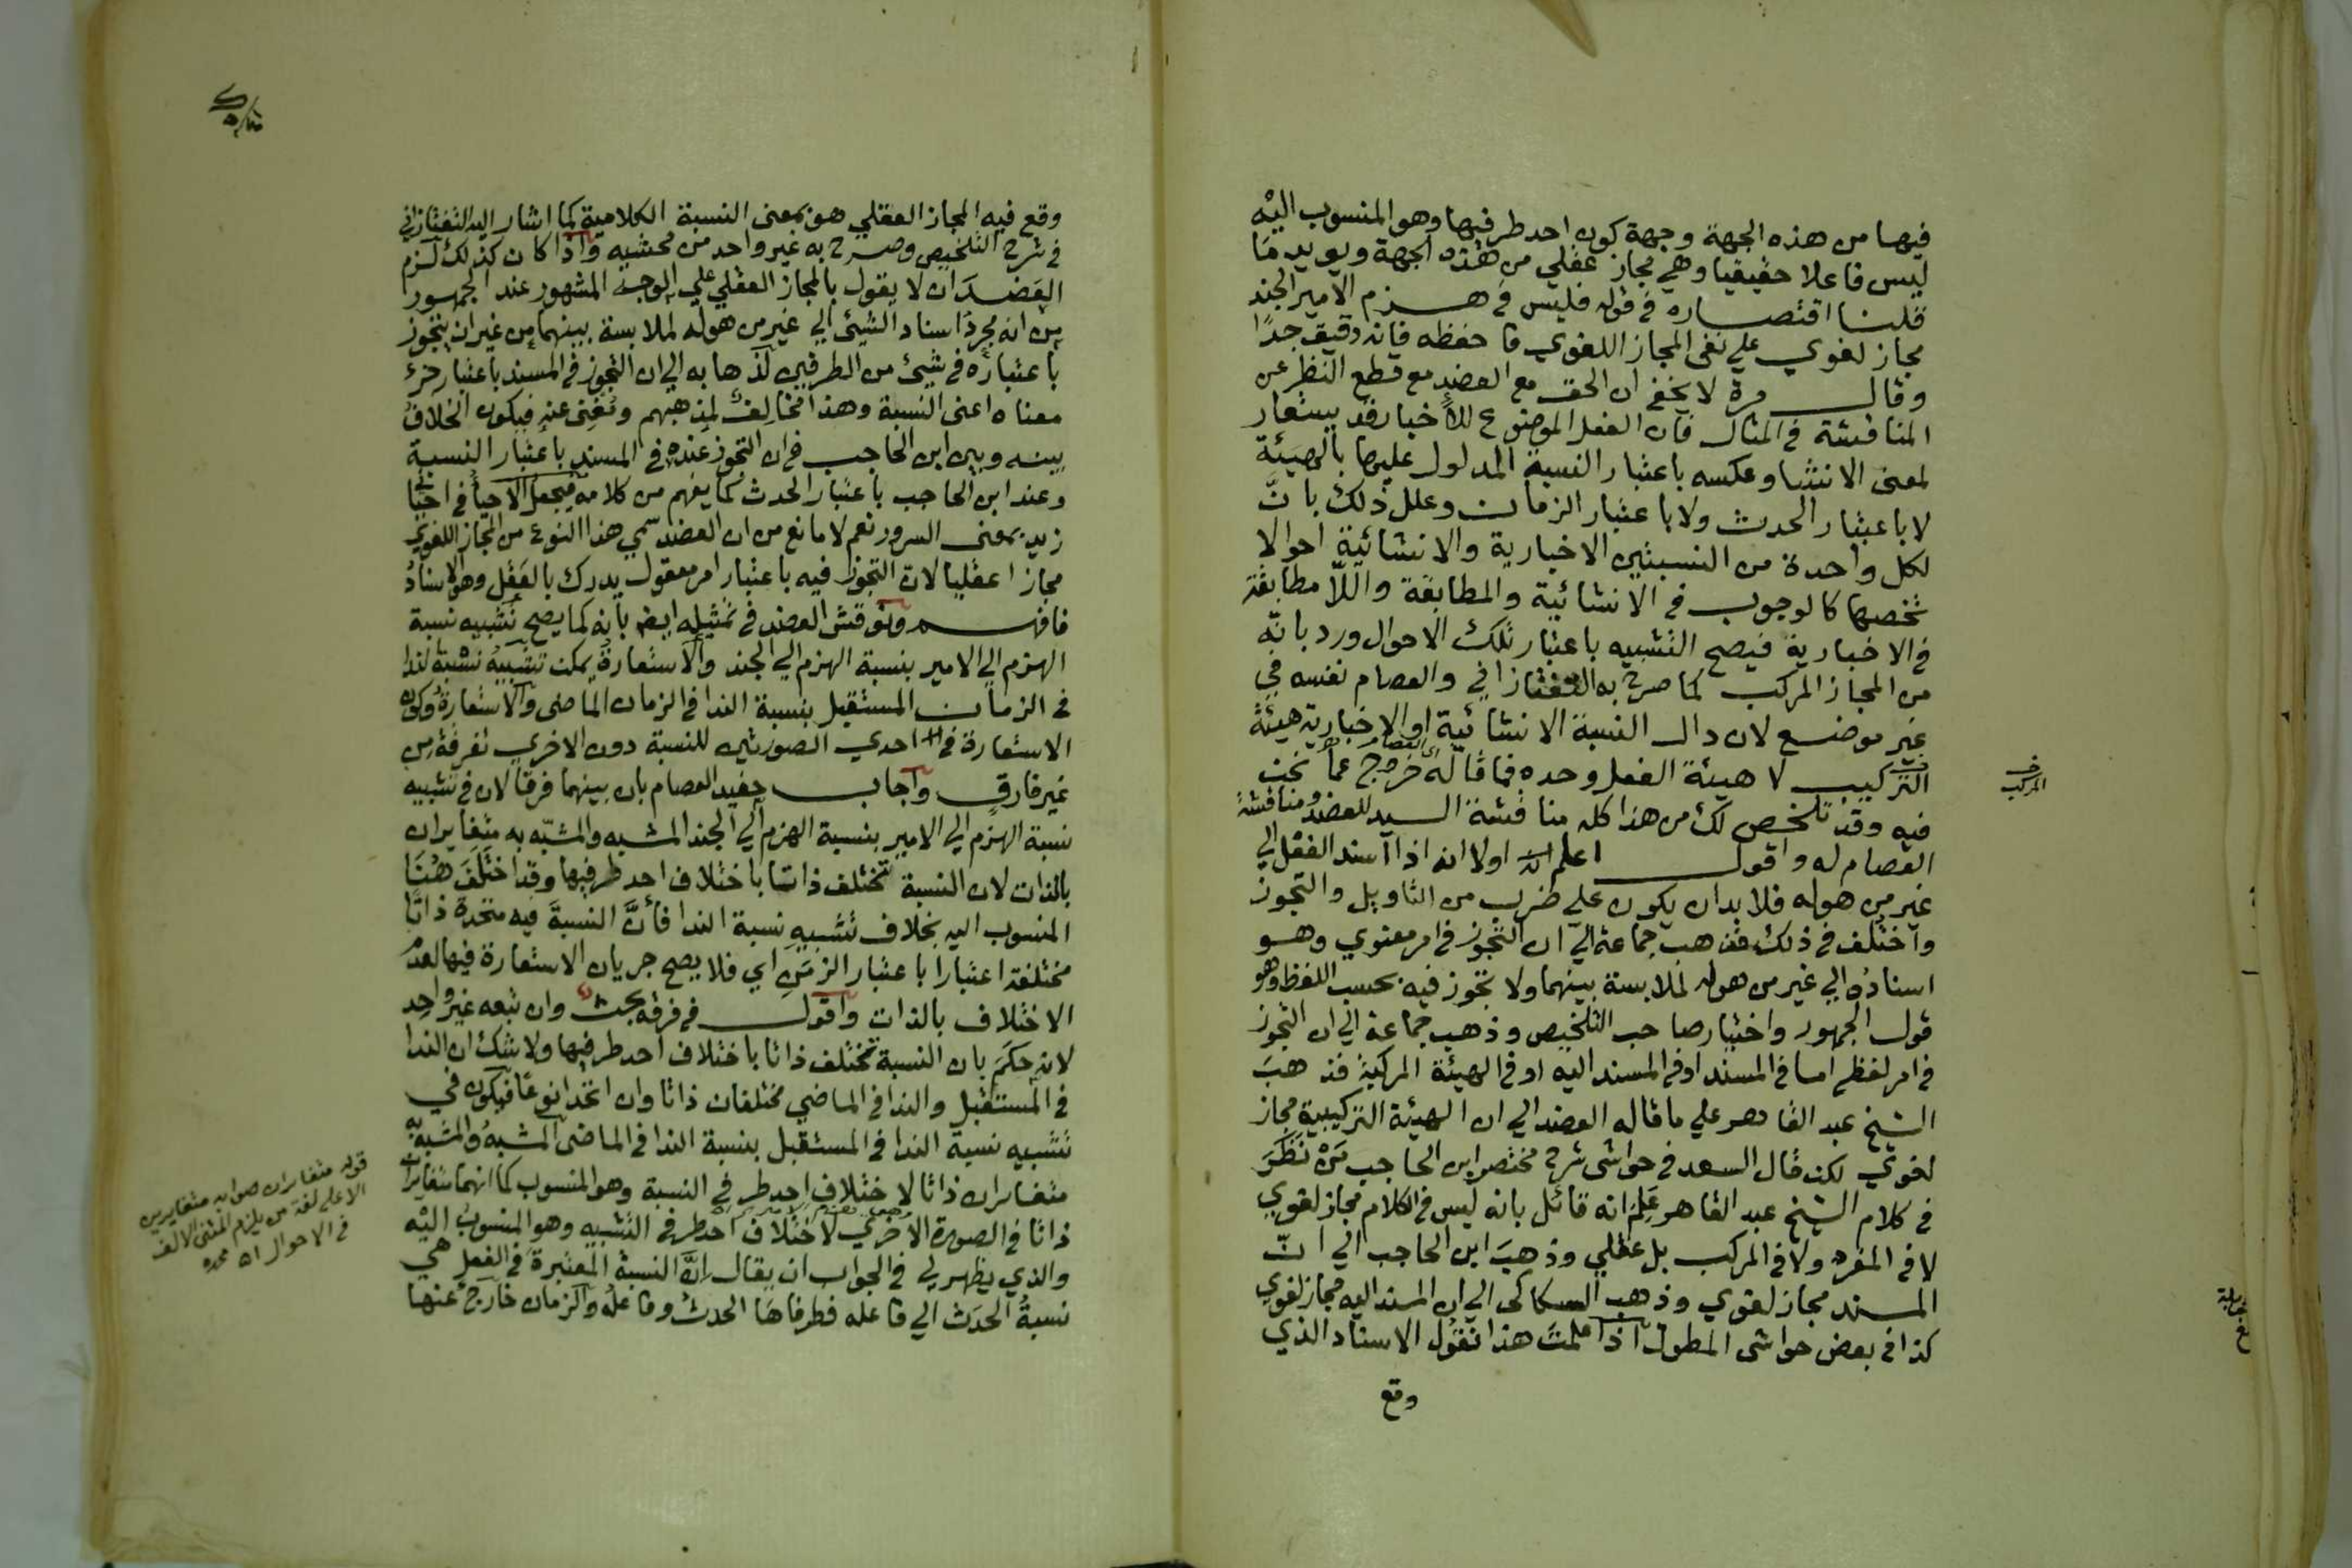 فيها من هذه الجهة وجهة كون احد طرفيها وهو المنسوب اليه
ليس فاعلا حقيقيا وهي مجاز عقلي من هذه الجهة ويويد ما
قلنا اقتصاره في قوله فليس في هزم الامير الجند
مجاز لغوي علي نفي المجاز اللغوي فاحفظه فانه دقيق جدا
وقال مرة لا يخفى ان الحق مع العضد مع قطع النظر عن
المناقشة في المثال فان الفعل الموضوع للاخبار قد يستعار
لمعنى الانشا وعكسه باعتبار النسبة المدلول عليها بالهيئة
لا باعتبار الحدث ولا باعتبار الزمان وعلل ذلك بانّ
لكل واحدة من النسبتين الاخبارية والانشائية احوالا
تخصها كالوجوب في الانشائية والمطابقة واللّا مطابقة
في الاخبارية فيصح التشبيه باعتبار تلك الاحوال ورد بانّه
من المجاز المركب كما صرح به التفتازاني والعصام نفسه في
غير موضع لان دال النسبة الانشائية او الاخبارية هيئة
التركيب لا هيئة الفعل وحده فما قاله خروج عما نحن
فيه وقد تلخص لك من هذا كله مناقشة السيد للعضد ومناقشة
العصام له واقول اعلم اولا انه اذا اسند الفعل الي
غير من هو له فلا بد ان يكون علي ضرب من التاويل والتجوز
واختلف في ذلك فذهب جماعة الي ان التجوز في امر معنوي وهو
اسناده الي غير من هو له لملابسة بينهما ولا تجوز فيه بحسب اللفظ وهو
قول الجمهور واختيار صاحب التلخيص وذهب جماعة الي ان التجوز
في امر لفظي اما في المسند او في المسند اليه او في الهيئة المركبة فذهب
الشيخ عبد القاهر علي ما قاله العضد الي ان الهيئة التركيبية مجاز
لغوي لكن قال السعد في حواشي شرح مختصر ابن الحاجب من نظر
في كلام الشيخ عبد القاهر علم انه قائل بانه ليس في الكلام مجاز لغوي
لا في المفرد ولا في المركب بل عقلي وذهب ابن الحاجب الي انّ
المسند مجاز لغوي وذهب السكاكى الي ان المسند اليه مجاز لغوي
كذا في بعض حواشى المطول اذا علمت هذا نقول الاسناد الذي
وقع
المركب
وقع فيه المجاز العقلي هو بمعنى النسبة الكلامية كما اشار اليه التفتازاني
في شرح التلخيص وصرح به غير واحد من محشيه واذا كان كذلك لزم
العضد ان لا يقول بالمجاز العقلي علي الوجه المشهور عند الجمهور
من انه مجرد اسناد الشيئ الي غير من هو له لملابسة بينهما من غير ان يتجوز
باعتباره في شيئ من الطرفين لذهابه الي ان التجوز في المسند باعتبار جزء
معناه اعنى النسبة وهذا مخالف لمذهبهم ومغن عنه فيكون الخلاف
بينه وبين ابن الحاجب في ان التجوز عنده في المسند باعتبار النسبة
وعند ابن الحاجب باعتبار الحدث كما يفهم من كلامه فيجعل الاحيا في احيا
زيد بمعنى السرور نعم لا مانع من ان العضد سمي هذا النوع من المجاز اللغوي
مجازا عقليا لان التجوز فيه باعتبار امر معقول يدرك بالعقل وهو الاسناد
فافهم ونوقش العضد في تمثيله ايضا بانه كما يصح تشبيه نسبة
الهزم الي الامير بنسبة الهزم الي الجند والاستعارة يمكن تشبيه نسبة الندا
في الزمان المستقبل بنسبة الندا في الزمان الماضى والاستعارة وكون
الاستعارة في احدي الصورتين للنسبة دون الاخري تفرقة من
غير فارق واجاب حفيد العصام بان بينهما فرقا لان في تشبيه
نسبة الهزم الي الامير بنسبة الهزم الي الجند المشبه والمشبّه به متغايران
بالذات لان النسبة تختلف ذاتا باختلاف احد طرفيها وقد اختلف هنا
المنسوب اليه بخلاف تشبيه نسبة الندا فأنّ النسبة فيه متحدة ذاتا
مختلفة اعتبارا باعتبار الزمن اي فلا يصح جريان الاستعارة فيها لعدم
الاختلاف بالذات واقول في فرقه بحث وان تبعه غير واحد
لانه حكم بان النسبة تختلف ذاتا باختلاف احد طرفيها ولا شك ان الندا
في المستقبل والندا في الماضي مختلفان ذاتا وان اتحدا نوعا فيكون في
تشبيه نسبة الندا في المستقبل بنسبة الندا في الماضى المشبه والمشبه به
متغايران ذاتا لاختلاف احد طرفي النسبة وهو المنسوب كما انهما متغايران
ذاتا في الصورة الاخري لاختلاف احد طرفي التشبيه وهو المنسوب اليه
والذي يظهر لي في الجواب ان يقال انّ النسبة المعتبرة في الفعل هي
نسبة الحدث الي فاعله فطرفاها الحدث وفاعله والزمان خارج عنها
قوله متغايران صوابه متغايرين
الا على لغة من يلزم المثنى الالف
في الاحوال اه